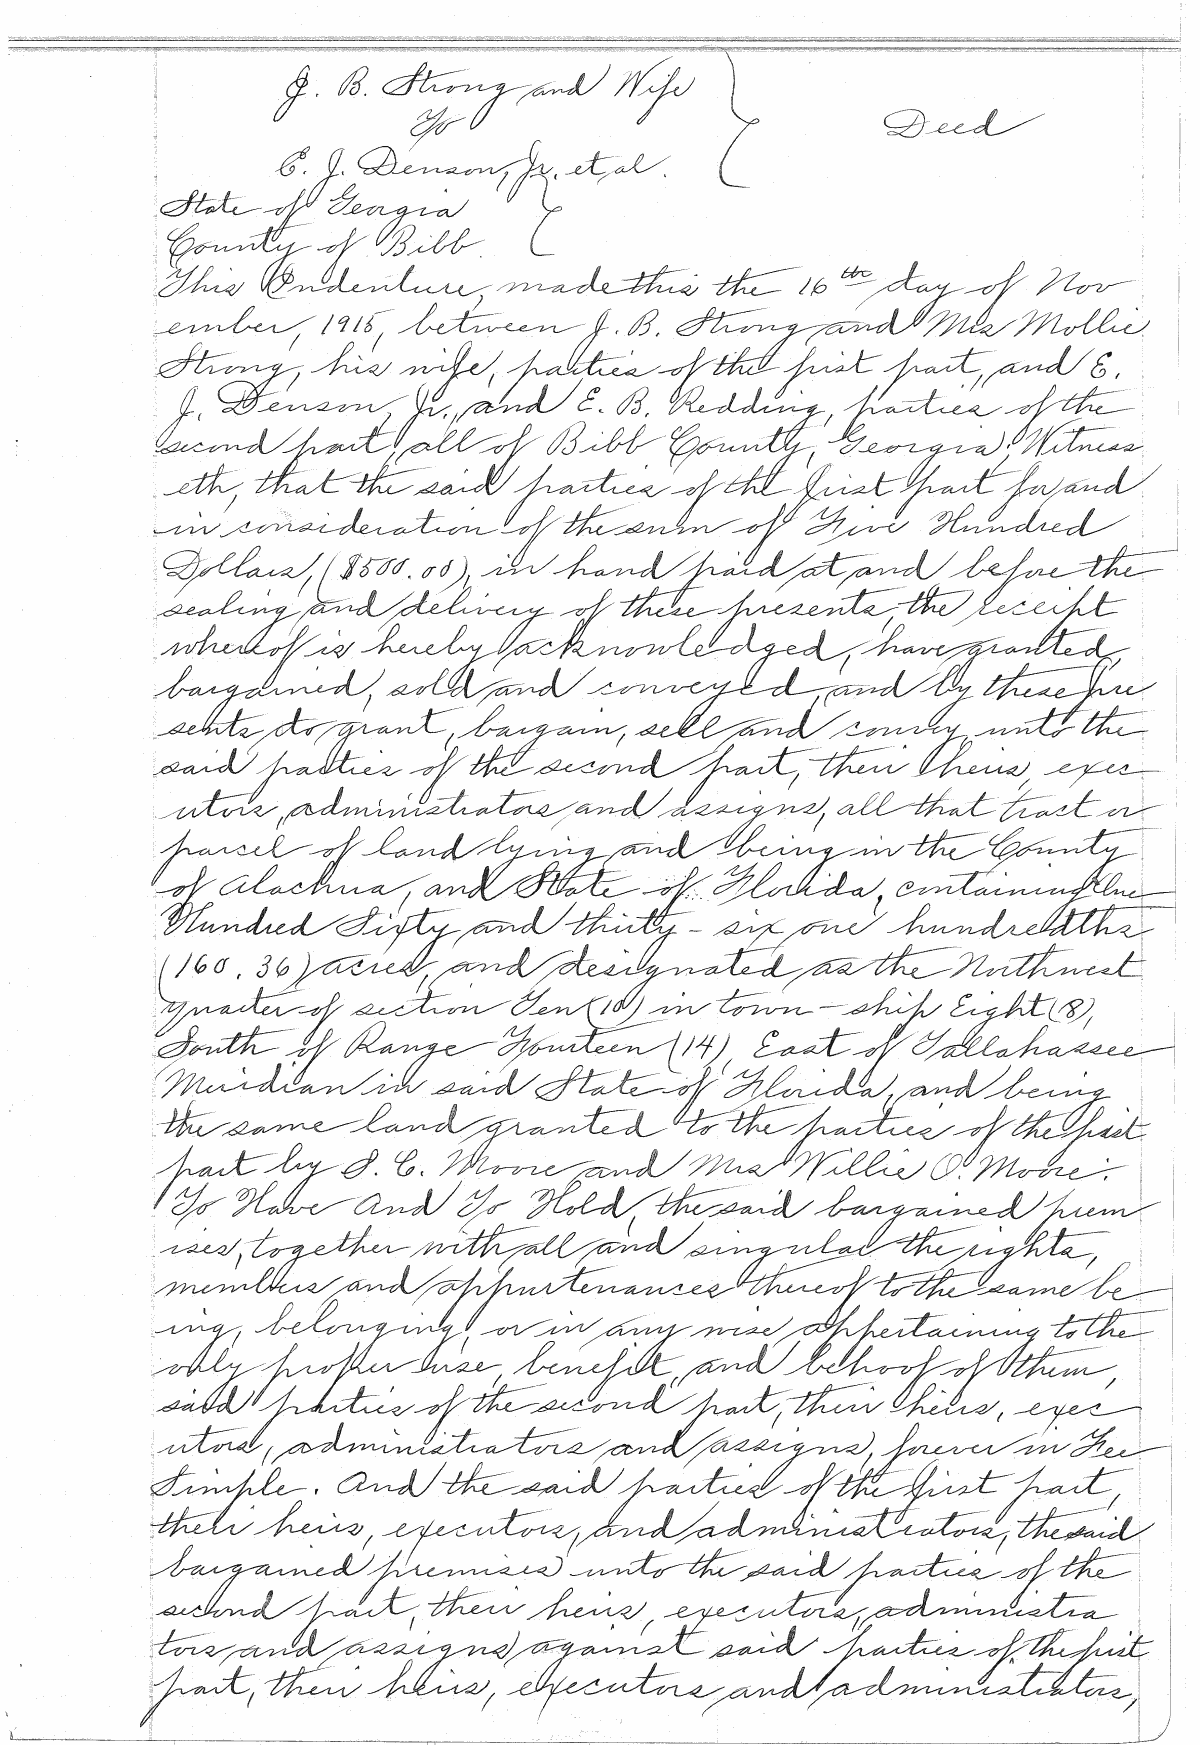 J. B. Strong and Wife
To
Deed
E. J. Denson, Jr. et al.
State of Georgia
County of Bibb
This Indenture, made this the 16th day of Nov
ember, 1915, between J. B. Strong and Mrs Mollie
Strong, his wife, parties of the first part, and E.
J. Denson, Jr., and E. B. Redding, parties of the
second part, all of Bibb County, Georgia; Witness
eth, that the said parties of the first part for and
in consideration of the sum of Five Hundred
Dollars, ($500.00), in hand paid at and before the
sealing and delivery of these presents, the receipt
whereof is hereby acknowledged, have granted,
bargained, sold and conveyed, and by these pre
sents do grant, bargain, sell and convey unto the
said parties of the second part, their heirs, exec
utors, administrators and assigns, all that tract or
parcel of land lying and being in the County
of Alachua, and State of Florida, containing One
Hundred Sixty and thirty-six one hundredths
(160.36) acres, and designated as the Northwest
quarter of section Ten (10) in town-ship Eight (8),
South of Range Fourteen (14) East of Tallahassee
Meridian in said State of Florida, and being
the same land granted to the parties of the first
part by S. C. Moore and Mrs Willie O. Moore.
To Have And To Hold, the said bargained prem
ises, together with all and singular the rights,
members and appurtenances thereof to the same be
ing, belonging, or in any wise appertaining to the
only proper use, benefit, and behoof of them,
said parties of the second part, their heirs, exec
utors, administrators and assigns, forever in Fee
Simple. And the said parties of the first part,
their heirs, executors, and administrators, the said
bargained premises unto the said parties of the
second part, their heirs, executors, administra
tors and assigns, against said parties of the first
part, their heirs, executors and administrators,